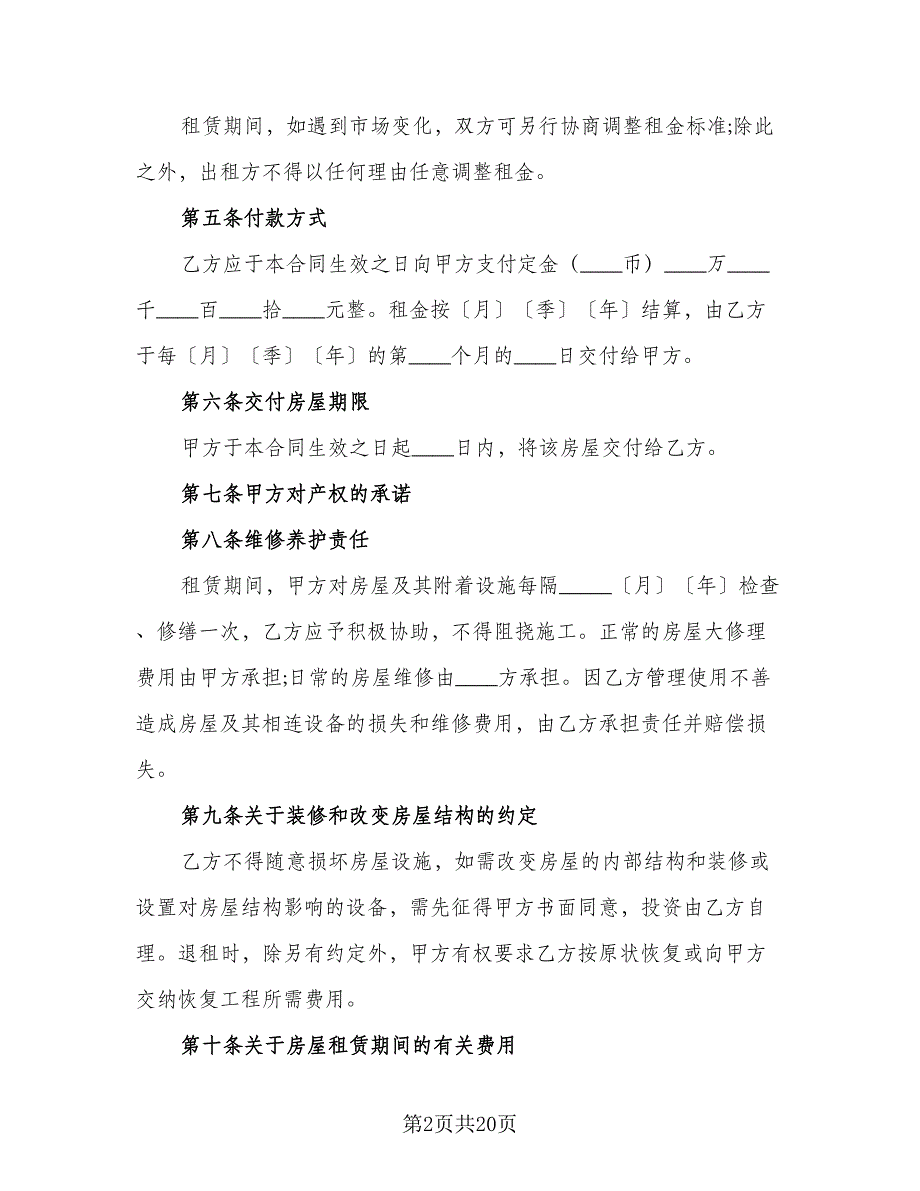 租赁期间，如遇到市场变化，双方可另行协商调整租金标准;除此
之外，出租方不得以任何理由任意调整租金。
第五条付款方式
乙方应于本合同生效之日向甲方支付定金（____币）____万____
千____百____拾____元整。租金按〔月〕〔季〕〔年〕结算，由乙方
于每〔月〕〔季〕〔年〕的第____个月的____日交付给甲方。
第六条交付房屋期限
甲方于本合同生效之日起____日内，将该房屋交付给乙方。
第七条甲方对产权的承诺
第八条维修养护责任
租赁期间，甲方对房屋及其附着设施每隔_____〔月〕〔年〕检查
、修缮一次，乙方应予积极协助，不得阻挠施工。正常的房屋大修理
费用由甲方承担;日常的房屋维修由____方承担。因乙方管理使用不善
造成房屋及其相连设备的损失和维修费用，由乙方承担责任并赔偿损
失。
第九条关于装修和改变房屋结构的约定
乙方不得随意损坏房屋设施，如需改变房屋的内部结构和装修或
设置对房屋结构影响的设备，需先征得甲方书面同意，投资由乙方自
理。退租时，除另有约定外，甲方有权要求乙方按原状恢复或向甲方
交纳恢复工程所需费用。
第十条关于房屋租赁期间的有关费用
第2页共20页